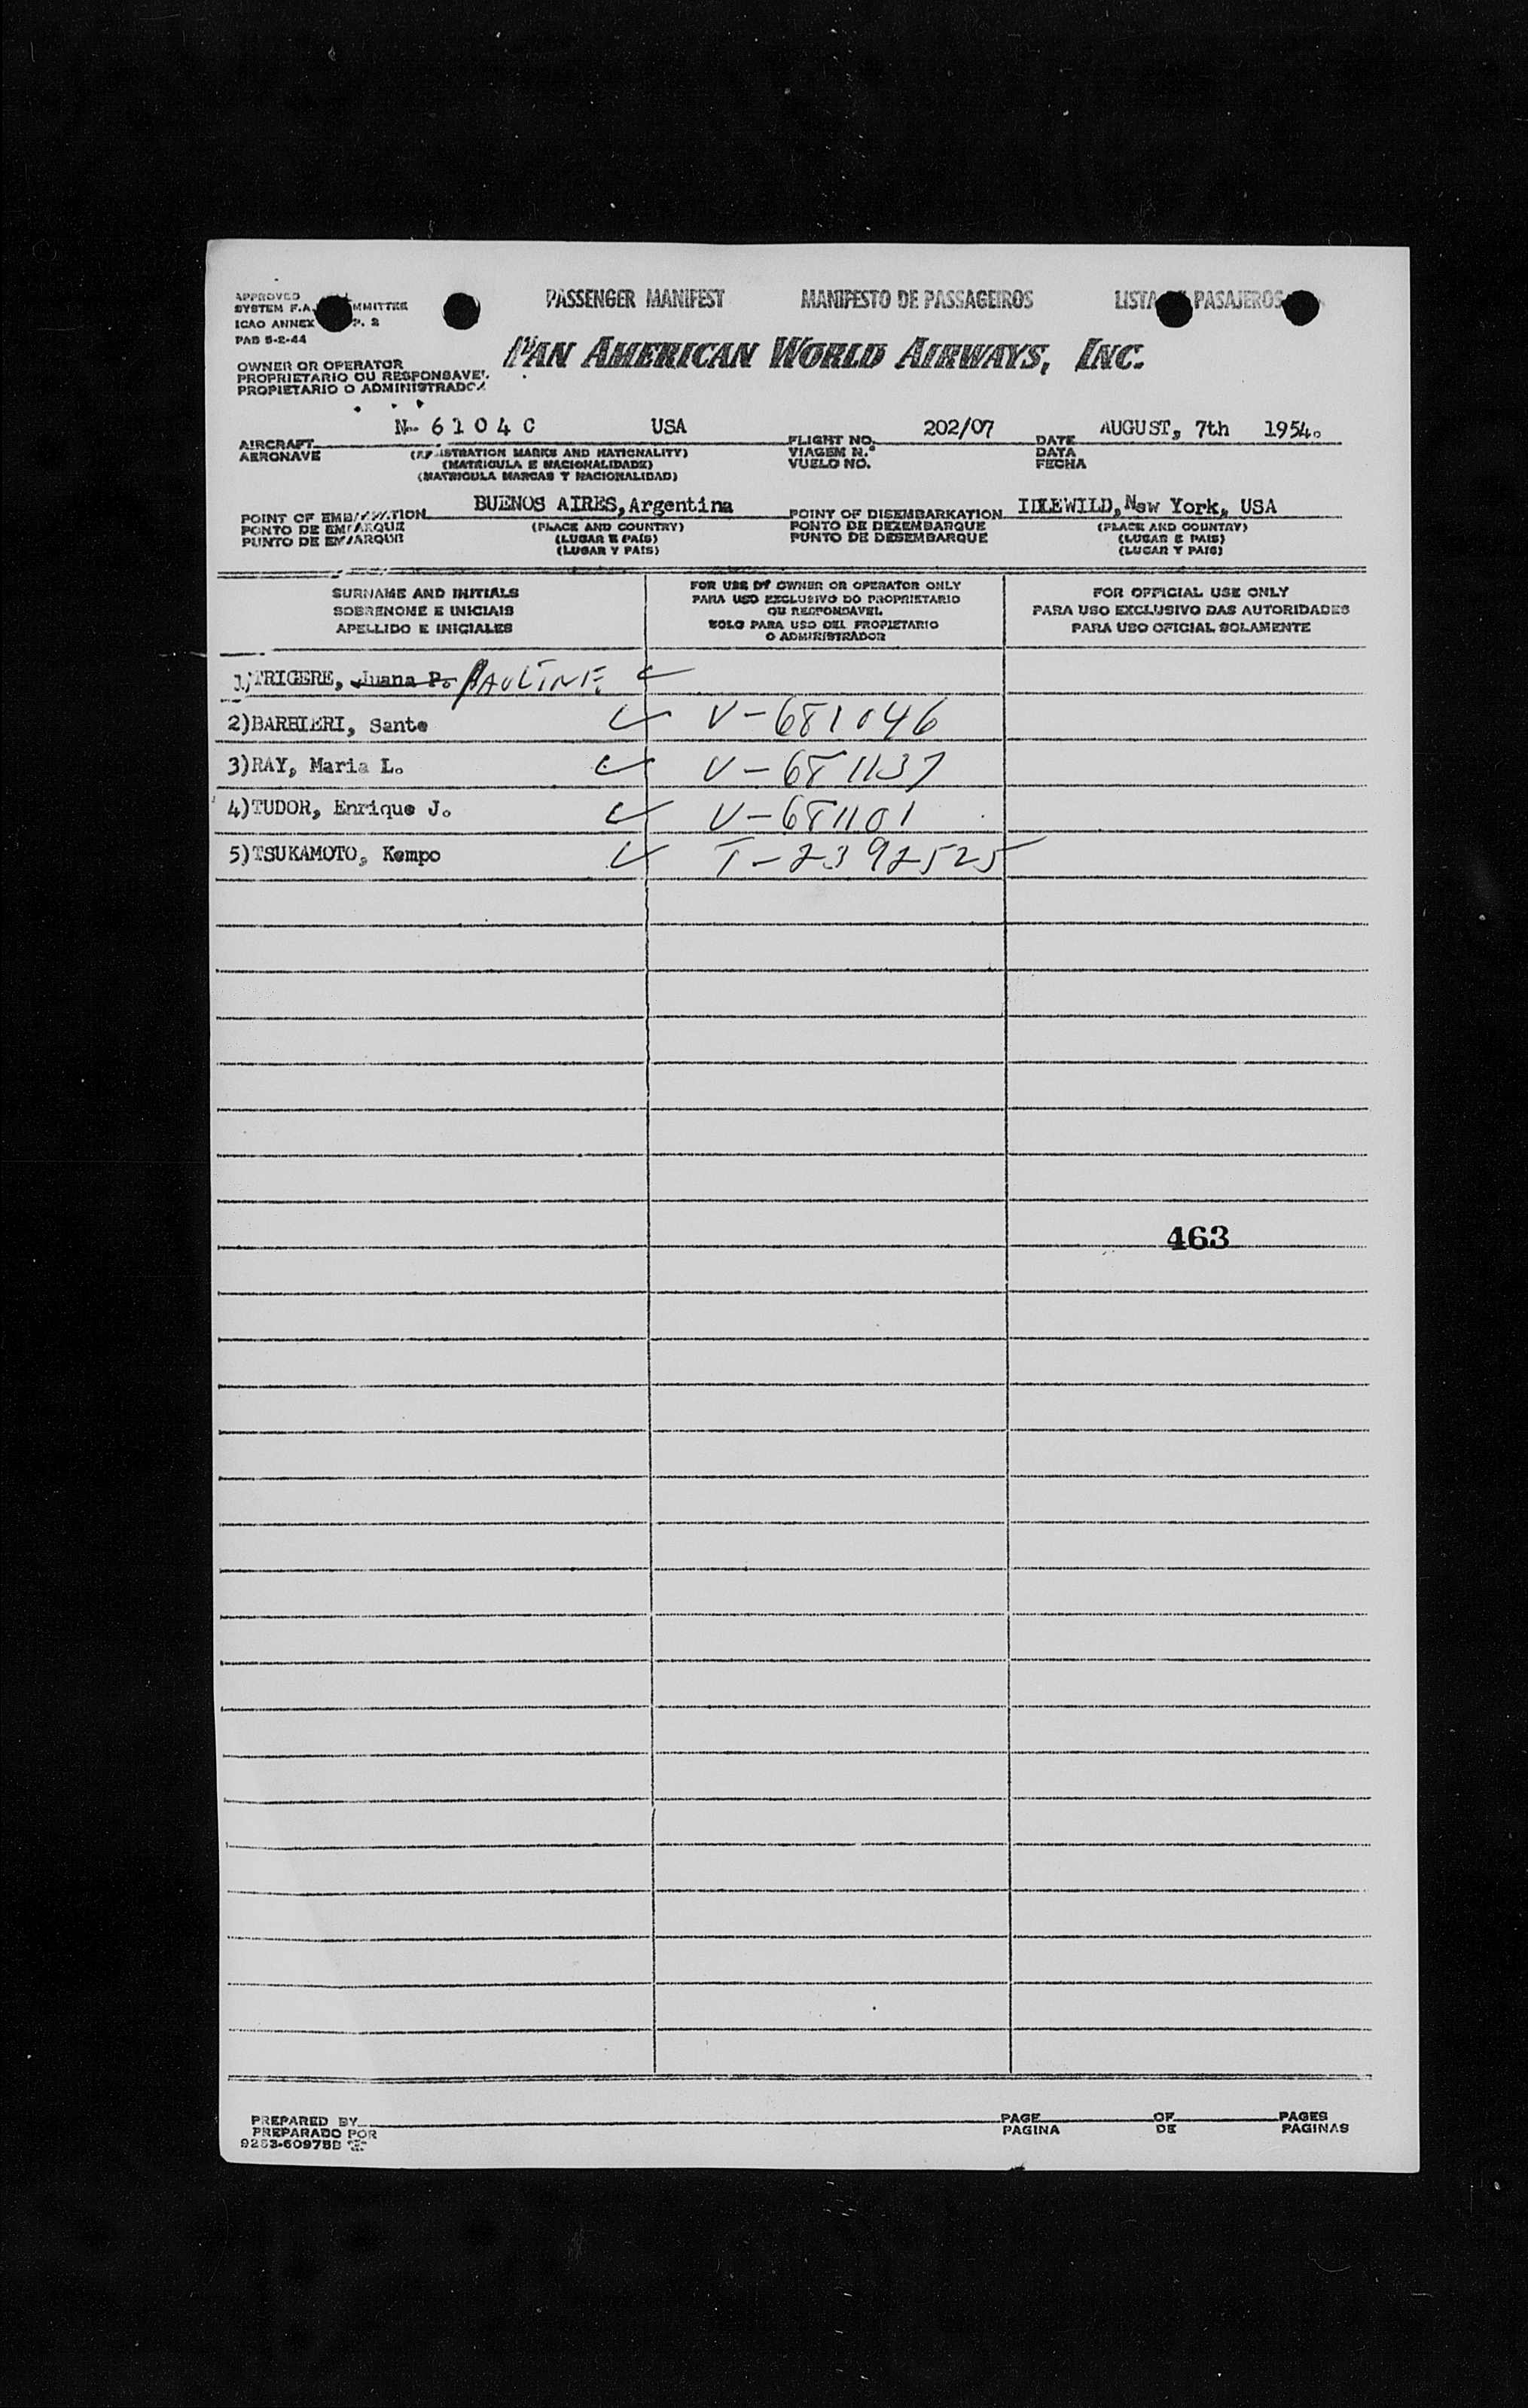 PASSENGER MANIFEST MANIFESTO DE PASSAGEIROS LISTA PASAJEROS
APPROVED
SYSTEM F.A. MMITTEE
ICAO ANNEX P. 2
PAB 5-2-44
PAN AMERICAN WORLD AIRWAYS, INC.
OWNER OR OPERATOR
PROPRIETARIO OU RESPONSAVEL
PROPIETARIO O ADMINISTRADOR
AIRCRAFT N- 6104C USA FLIGHT NO. 202/07 DATE AUGUST, 7th 1954.
AERONAVE (REGISTRATION MARKS AND NATIONALITY) VIAGEM N.º DATA
(MATRICULA E NACIONALIDADE) VUELO NO. FECHA
(MATRICULA MARCAS Y NACIONALIDAD)
POINT OF EMBARKATION BUENOS AIRES, Argentina POINT OF DISEMBARKATION IDLEWILD, New York, USA
PONTO DE EMBARQUE (PLACE AND COUNTRY) PONTO DE DEZEMBARQUE (PLACE AND COUNTRY)
PUNTO DE EMBARQUE (LUGAR E PAIS) PUNTO DE DESEMBARQUE (LUGAR E PAIS)
(LUGAR Y PAIS) (LUGAR Y PAIS)
SURNAME AND INITIALS
SOBRENOME E INICIAIS
APELLIDO E INICIALES
FOR USE BY OWNER OR OPERATOR ONLY
PARA USO EXCLUSIVO DO PROPRIETARIO
OU RESPONSAVEL
SOLO PARA USO DEL PROPIETARIO
O ADMINISTRADOR
FOR OFFICIAL USE ONLY
PARA USO EXCLUSIVO DAS AUTORIDADES
PARA USO OFICIAL SOLAMENTE
1)TRIGERE, Juana P. PAULINE
2)BARBIERI, Sante V-681046
3)RAY, Maria L. V-681137
4)TUDOR, Enrique J. V-681101
5)TSUKAMOTO, Kempo T-2392525
463
PREPARED BY PAGE OF PAGES
PREPARADO POR PAGINA DE PAGINAS
9263-60975B